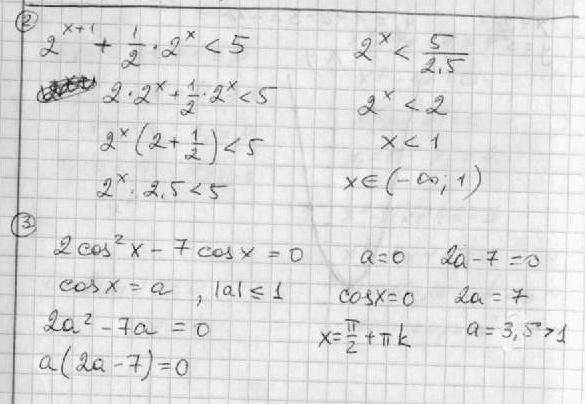 ②
2^(x+1) + 1/2 · 2^x < 5
2 · 2^x + 1/2 · 2^x < 5
2^x (2 + 1/2) < 5
2^x · 2,5 < 5
2^x < 5/2,5
2^x < 2
x < 1
x ∈ (-∞; 1)
③
2cos²x - 7cosx = 0
cosx = a , |a| ≤ 1
2a² - 7a = 0
a(2a - 7) = 0
a = 0
cosx = 0
x = π/2 + πk
2a - 7 = 0
2a = 7
a = 3,5 > 1